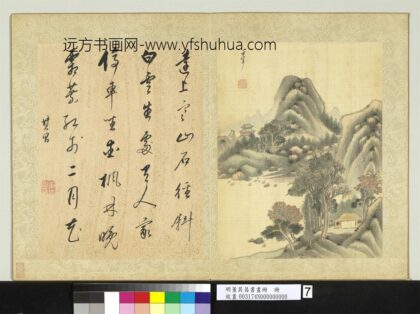 远方书画网-www.yfshuhua.com
遠上寒山石徑斜
白雲生處有人家
停車坐愛楓林晚
霜葉紅於二月花
其昌
玄宰
明董其昌書畫
故畫 003174N000000000
7